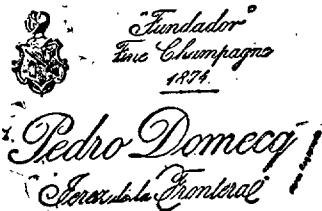 "Fundador"
Fine Champagne
1874.
Pedro Domecq
Jerez de la Frontera